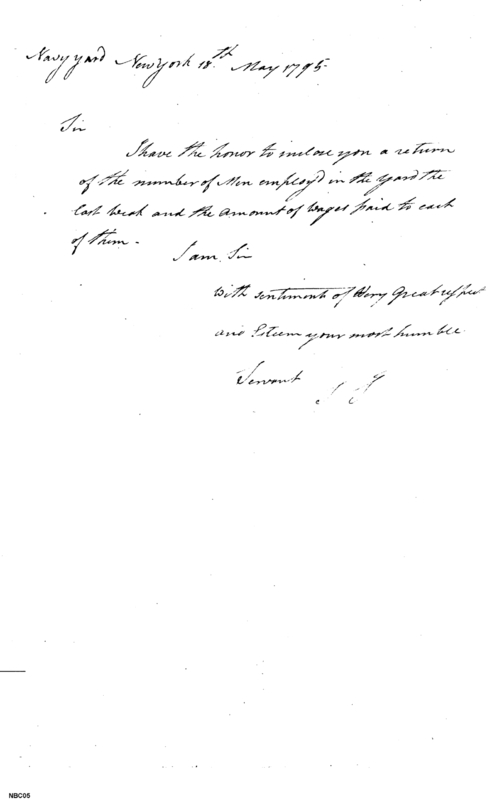 Navy yard New York 18th May 1795
Sir
I have the honor to inclose you a return
of the number of Men employ'd in the yard the
last week and the amount of wages paid to each
of them -
I am Sir
with sentiments of Very Great respect
and Esteem your most humble
Servant
NBC05